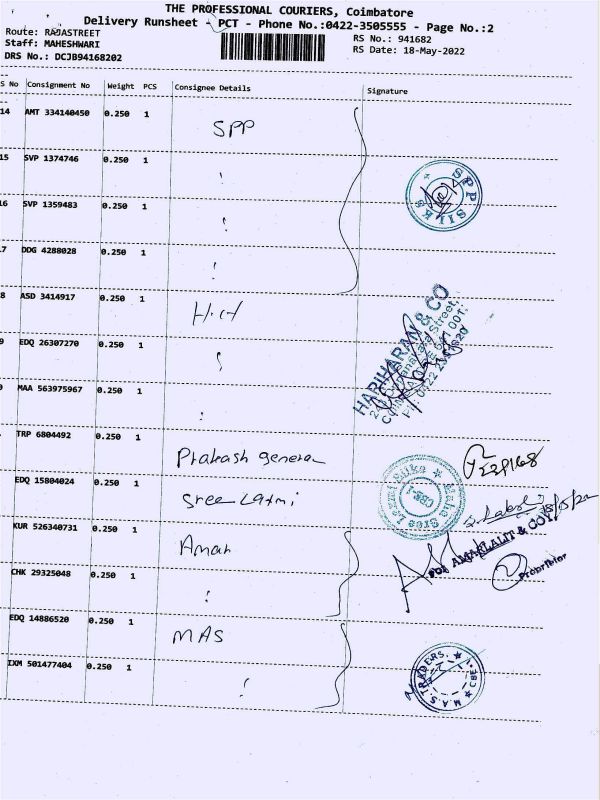 THE PROFESSIONAL COURIERS, Coimbatore
Delivery Runsheet - PCT - Phone No.:0422-3505555 - Page No.:2
Route: RAJASTREET
Staff: MAHESHWARI
DRS No.: DCJB94168202
RS No.: 941682
RS Date: 18-May-2022
S No Consignment No Weight PCS Consignee Details Signature
14 AMT 334140450 0.250 1 SPP
15 SVP 1374746 0.250 1
SPP SILKS
16 SVP 1359483 0.250 1
7 DDG 4288028 0.250 1
8 ASD 3414917 0.250 1 H.H
HARIHARAN & CO
9 EDQ 26307270 0.250 1
MAA 563975967 0.250 1
TRP 6804492 0.250 1 Prakash general
EDQ 15804024 0.250 1 Sree Laxmi
KUR 526340731 0.250 1 Aman
For AMARLALIT & CO.
Proprietor
CHK 29325048 0.250 1
EDQ 14886520 0.250 1 MAS
M.A.S. TRADERS. CBE-1.
IXM 501477404 0.250 1